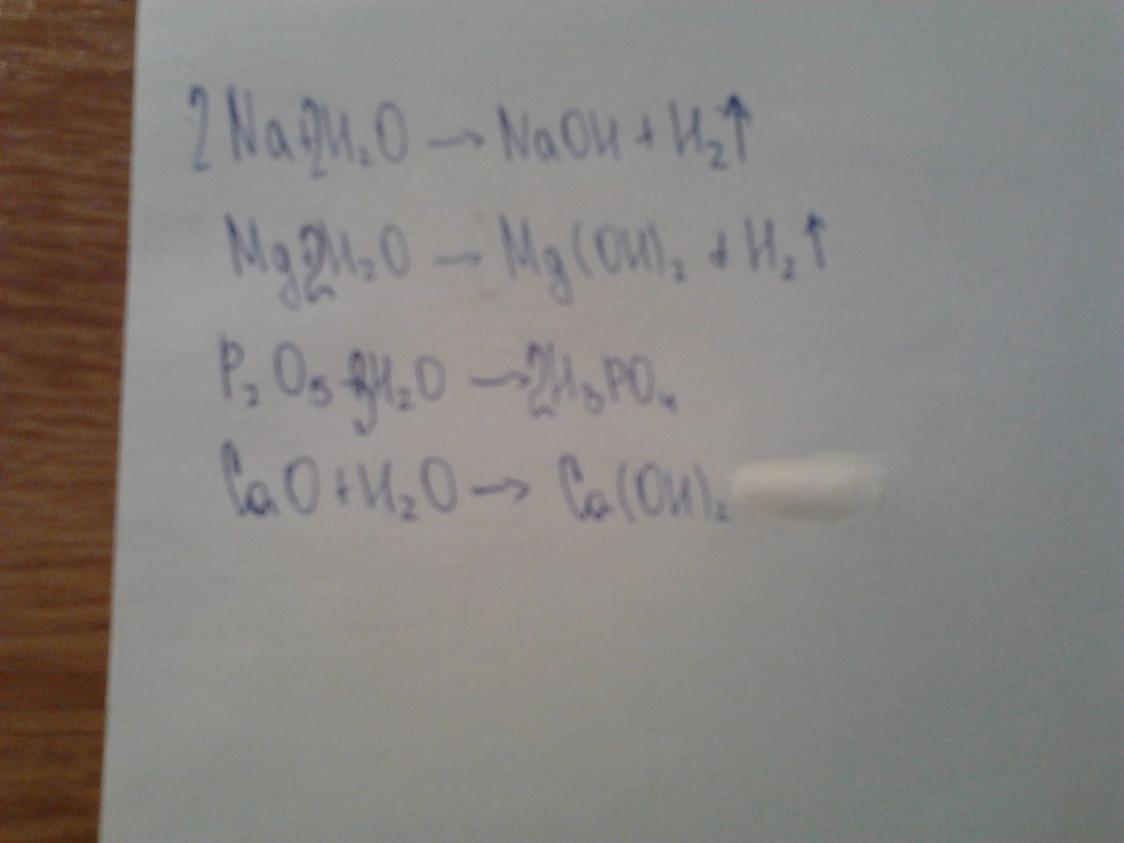 2Na+2H₂O → NaOH + H₂↑
Mg+2H₂O → Mg(OH)₂ + H₂↑
P₂O₅+3H₂O → 2H₃PO₄
CaO+H₂O → Ca(OH)₂